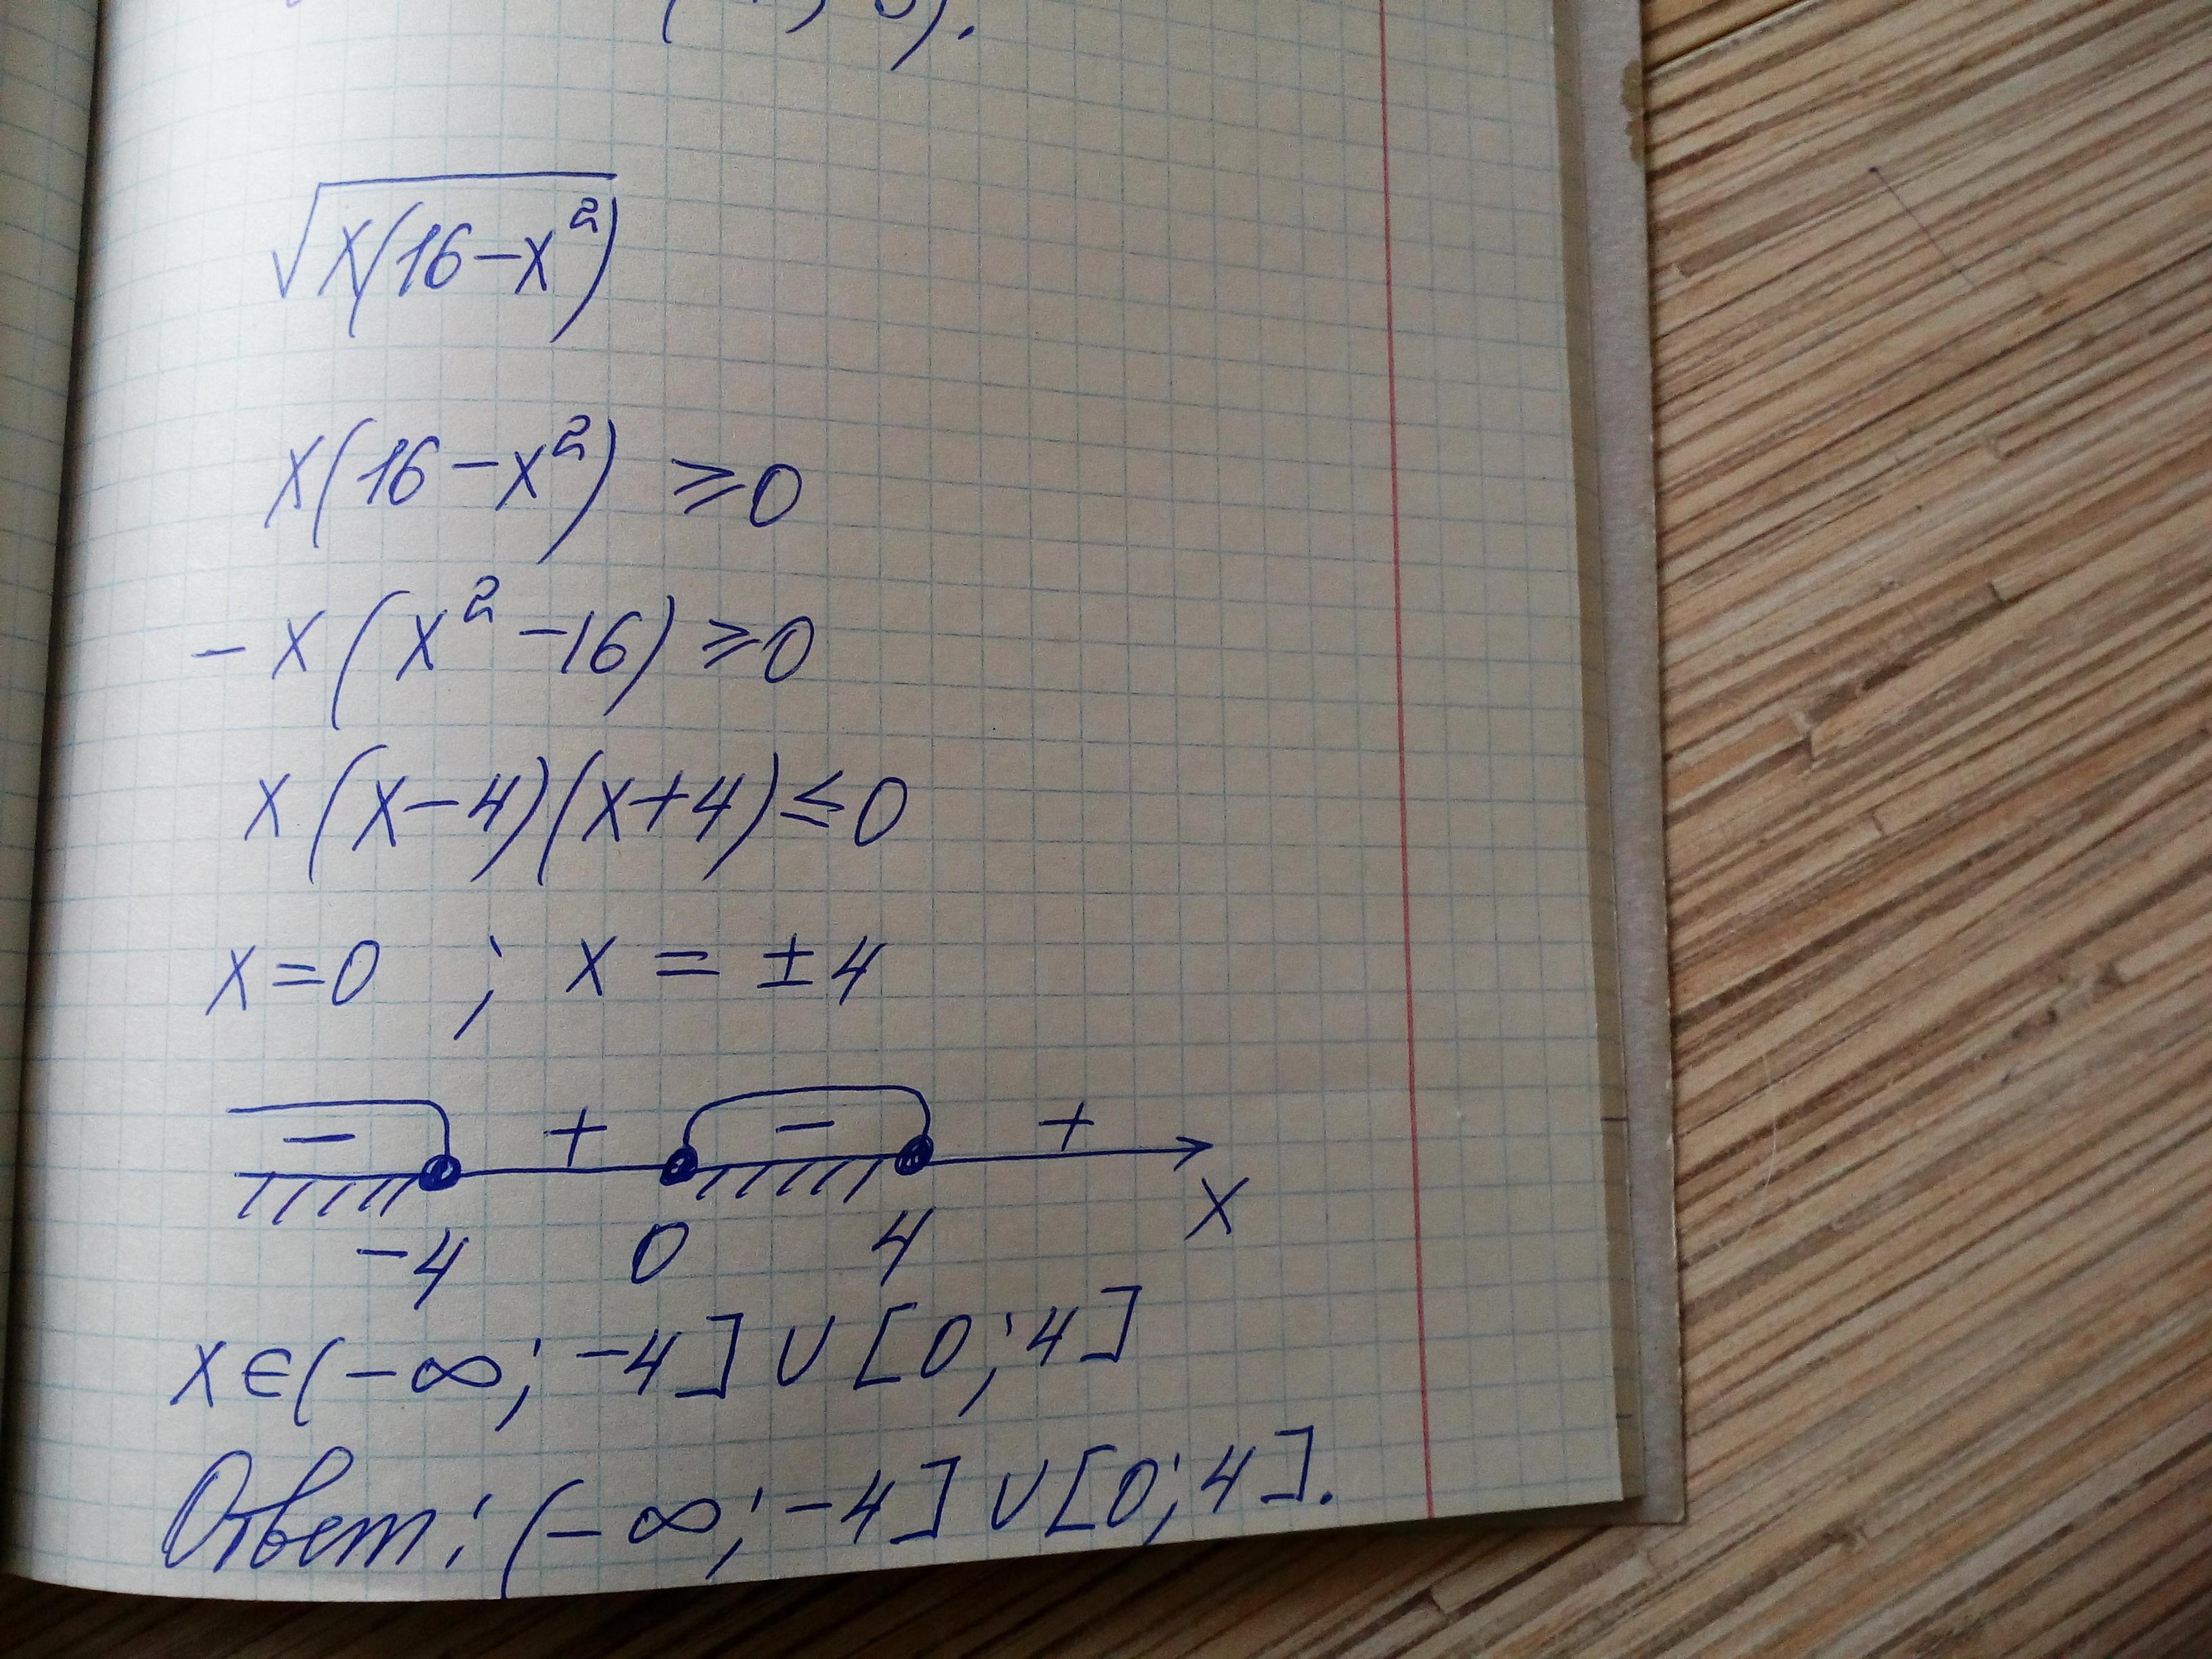 √x(16-x²)
x(16-x²) ⩾0
-x(x²-16)⩾0
x(x-4)(x+4)≤0
x=0 ; x = ±4
- + - +
-4 0 4 x
x∈(-∞;-4]∪[0;4]
Ответ: (-∞;-4]∪[0;4].